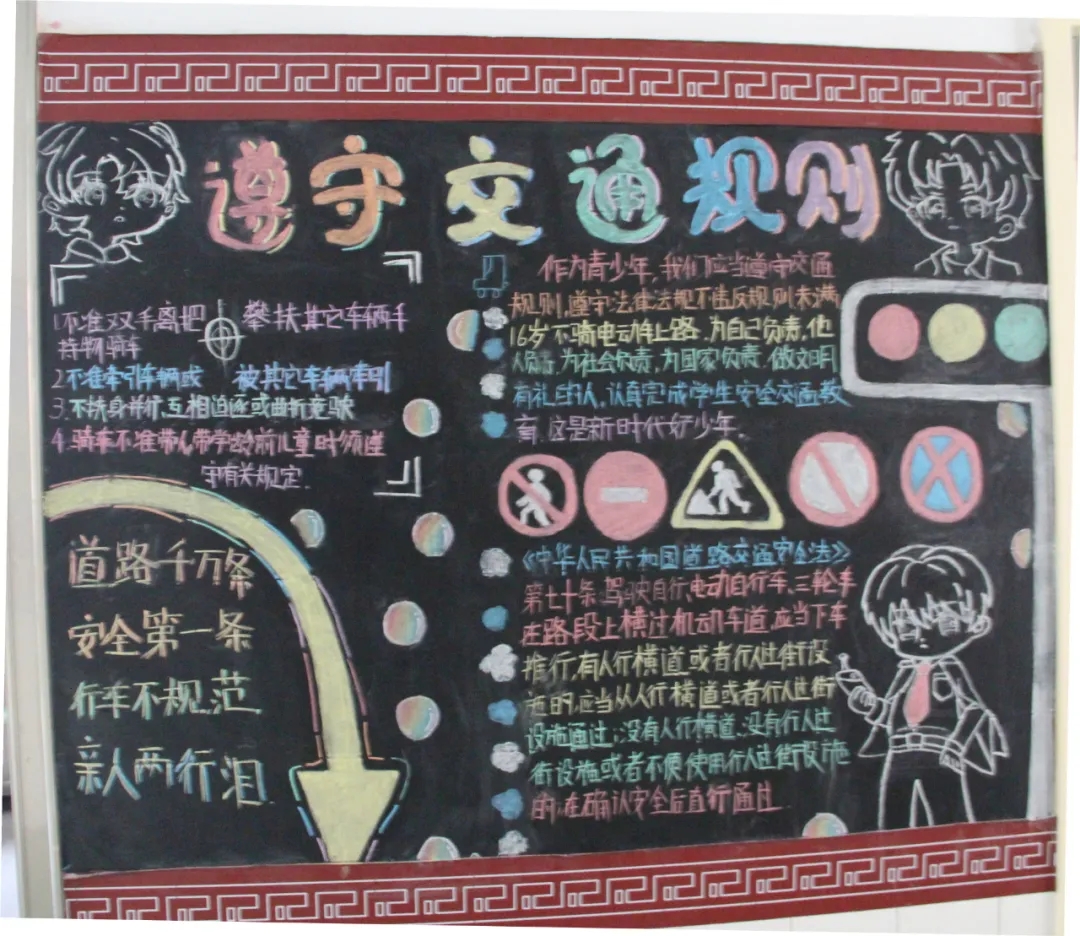 遵守交通规则
1.不准双手离把 攀扶其它车辆手
持物骑车
2.不准牵引车辆或 被其它车辆牵引
3.不扶身并扩互相追逐或曲折竞驶
4.骑车不准带人带学龄前儿童时须遵
守有关规定.
道路千万条
安全第一条
行车不规范
亲人两行泪
作为青少年,我们应当遵守交通
规则,遵守法律法规不违反规则未满
16岁不骑电动车上路.为自己负责,他
人负责,为社会负责,为国家负责.做文明
有礼的人,认真完成学生安全交通教
育.这是新时代好少年.
《中华人民共和国道路交通安全法》
第七十条:驾驶自行、电动自行车、三轮车
在路段上横过机动车道,应当下车
推行,有人行横道或者行人过街设
施的,应当从人行横道或者行人过街
设施通过;没有人行横道、没有行人过
街设施或者不便使用行人过街设施
的,在确认安全后直行通过.